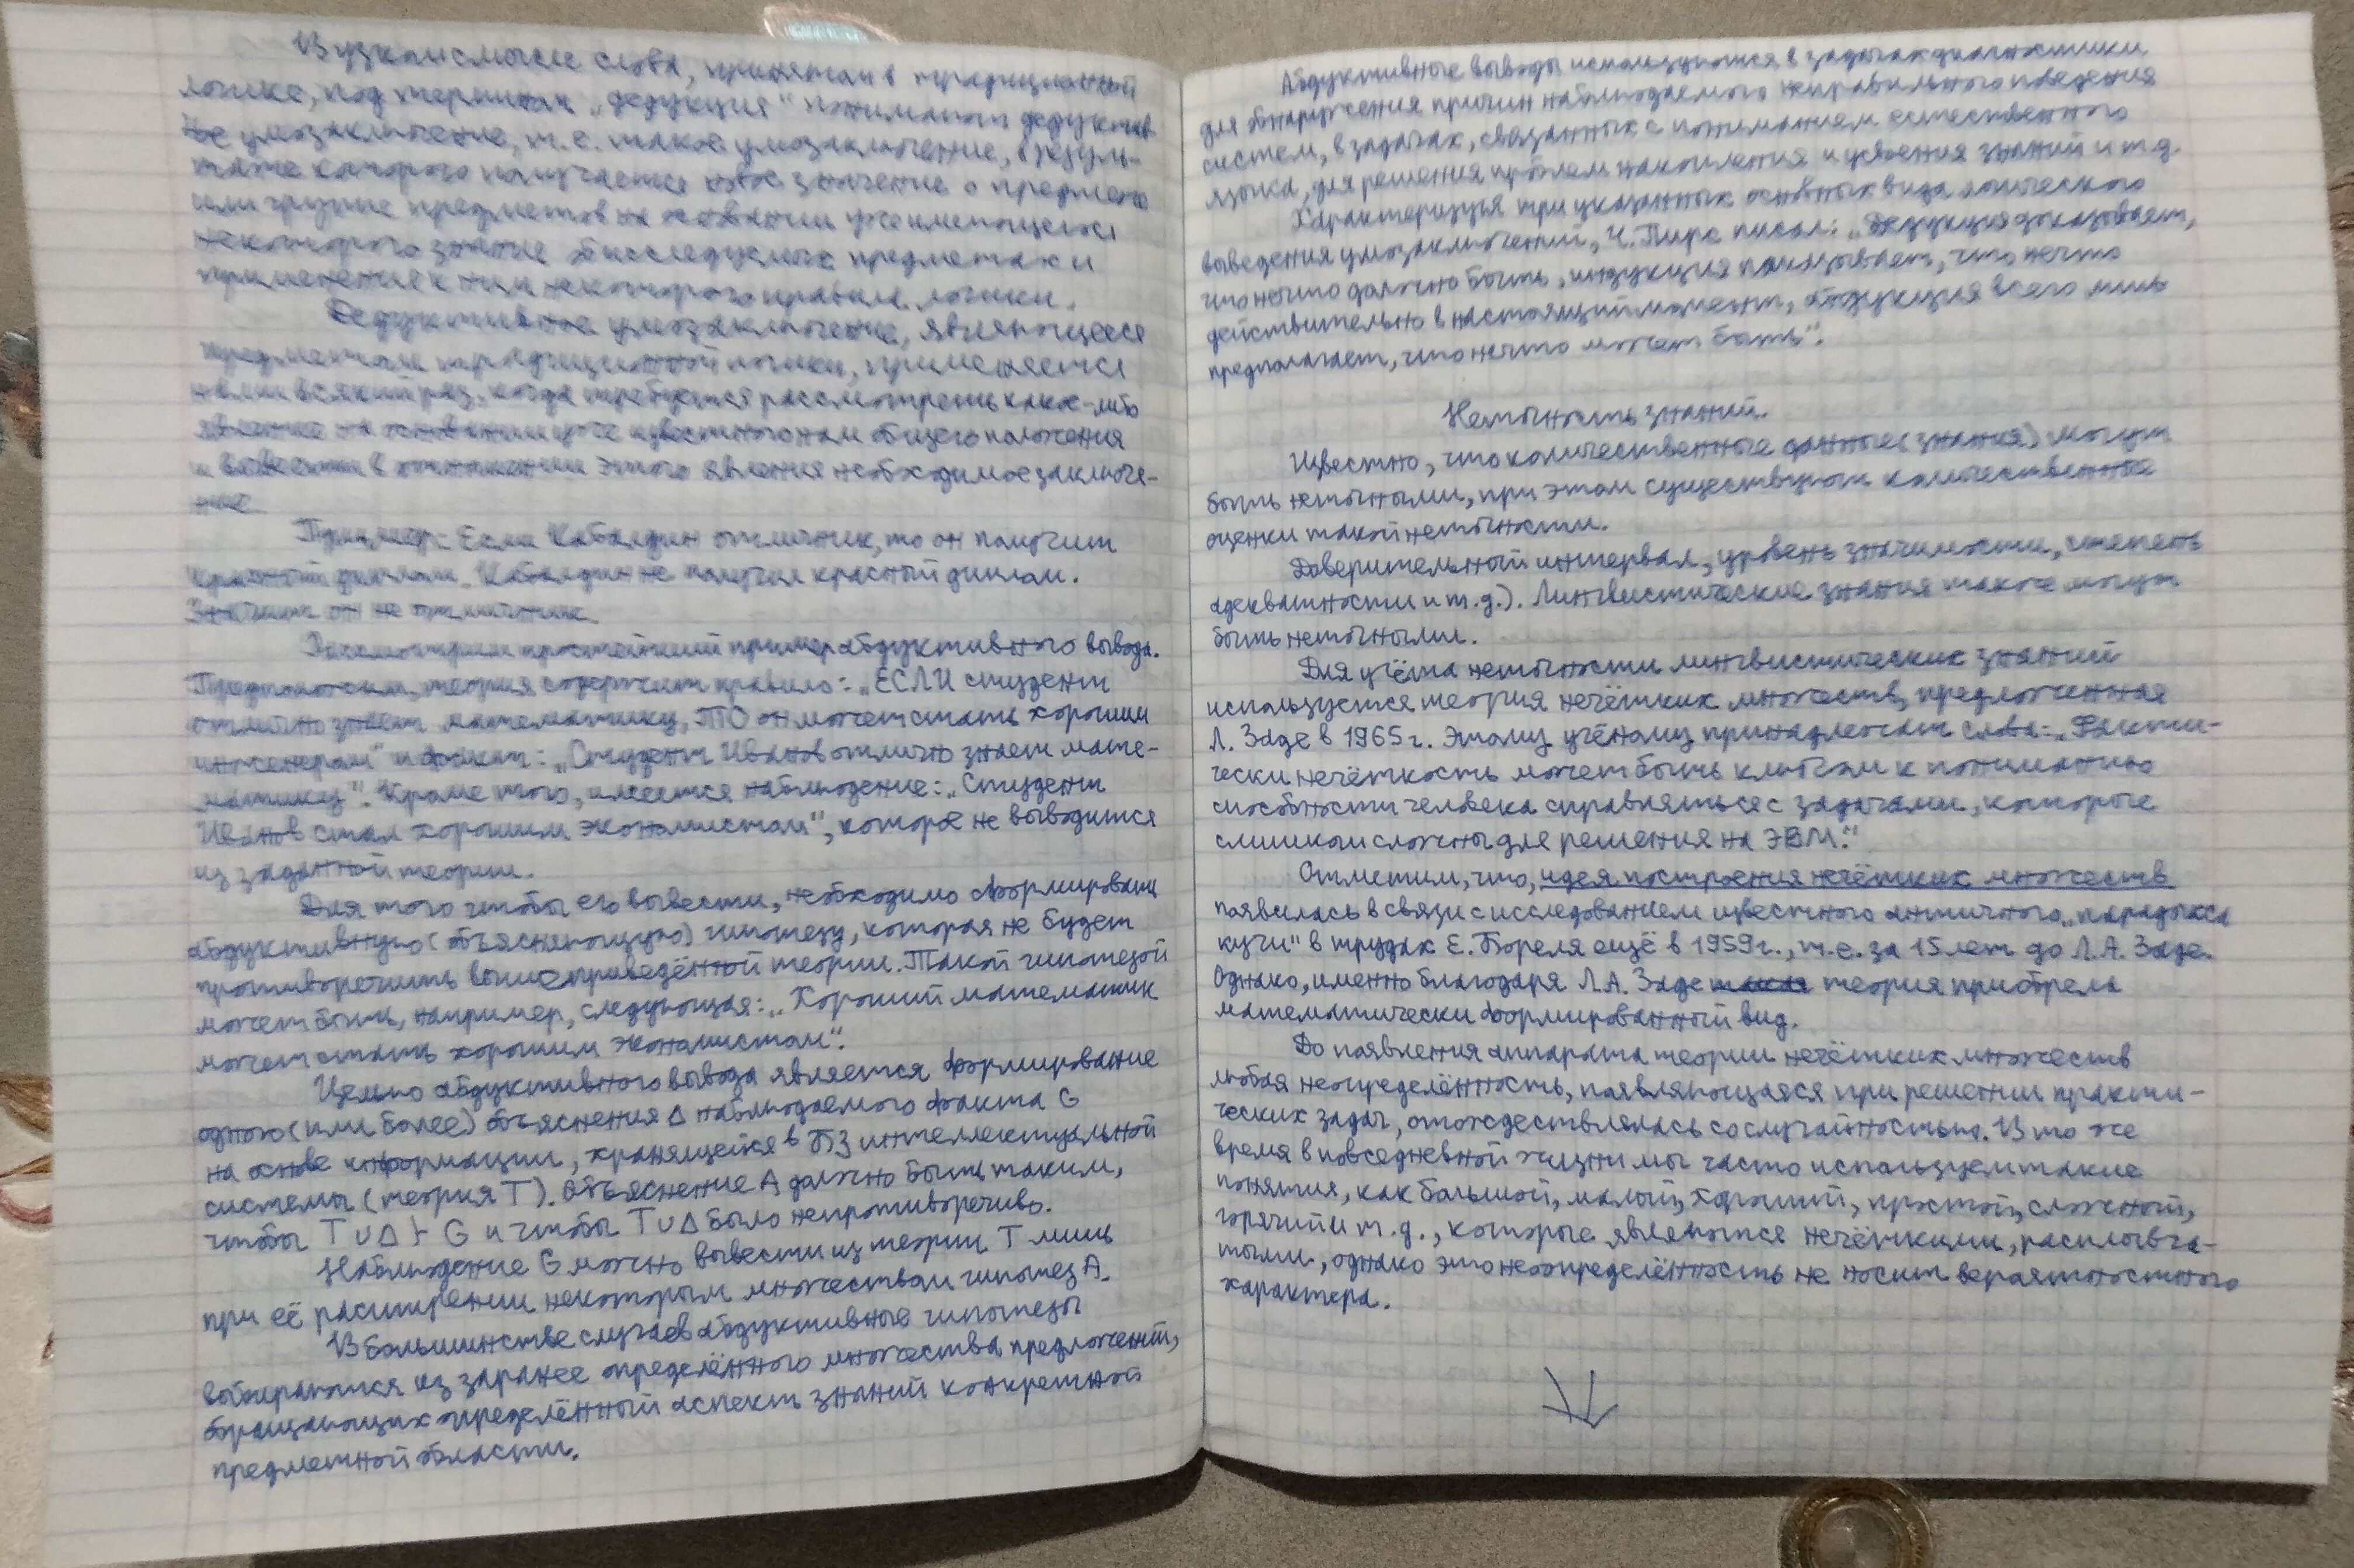 В узком смысле слова, принятом в традиционной
логике, под термином „дедукция" понимают дедуктив-
ное умозаключение, т.е. такое умозаключение, в резуль-
тате которого получается новое значение о предмете
или группе предметов на основании уже имеющегося
некоторого знание об исследуемых предметах и
применения к ним некоторого правила логики.
Дедуктивное умозаключение, являющееся
предметом традиционной логики, применяется
нами всякий раз, когда требуется рассмотреть какое-либо
явление на основании уже известного нам общего положения
и вывести в отношении этого явления необходимое заключе-
ние.
Пример: Если Кабалдин отличник, то он получит
красный диплом. Кабалдин не получил красный диплом.
Значит он не отличник.
Рассмотрим простейший пример абдуктивного вывода.
Предположим, теория содержит правило: „ЕСЛИ студент
отлично знает математику, ТО он может стать хорошим
инженером" и факт: „Студент Иванов отлично знает мате-
матику". Кроме того, имеется наблюдение: „Студент
Иванов стал хорошим экономистом", которое не выводится
из заданной теории.
Для того чтобы его вывести, необходимо сформировать
абдуктивную (объясняющую) гипотезу, которая не будет
противоречить вышеприведённой теории. Такой гипотезой
может быть, например, следующая: „Хороший математик
может стать хорошим экономистом".
Целью абдуктивного вывода является формирование
одного (или более) объяснения Δ наблюдаемого факта G
на основе информации, хранящейся в БЗ интеллектуальной
системы (теория T). Объяснение A должно быть таким,
чтобы T ∪ Δ ⊦ G и чтобы T ∪ Δ было непротиворечиво.
Наблюдение G можно вывести из теории T лишь
при её расширении некоторым множеством гипотез A.
В большинстве случаев абдуктивные гипотезы
выбираются из заранее определённого множества предложений,
обращающих определённый аспект знаний конкретной
предметной области.
Абдуктивные выводы используются в задачах диагностики
для обнаружения причин наблюдаемого неправильного поведения
систем, в задачах, связанных с пониманием естественного
языка, для решения проблем накопления и усвоения знаний и т.д.
Характеризуя три указанных основных вида логического
выведения умозаключений, Ч. Пирс писал: „Дедукция доказывает,
что нечто должно быть, индукция показывает, что нечто
действительно в настоящий момент, абдукция всего лишь
предполагает, что нечто может быть".
Неточность знаний.
Известно, что количественные данные (знания) могут
быть неточными, при этом существуют количественные
оценки такой неточности.
Доверительный интервал, уровень значимости, степень
адекватности и т.д.). Лингвистические знания также могут
быть неточными.
Для учёта неточности лингвистических знаний
используется теория нечётких множеств, предложенная
Л. Заде в 1965 г. Этому учёному принадлежат слова: „Факти-
чески нечёткость может быть ключом к пониманию
способности человека справляться с задачами, которые
слишком сложны для решения на ЭВМ."
Отметим, что, идея построения нечётких множеств
появилась в связи с исследованием известного античного „парадокса
кучи" в трудах Е. Бореля ещё в 1959 г., т.е. за 15 лет до Л.А. Заде.
Однако, именно благодаря Л.А. Заде теория приобрела
математически формированный вид.
До появления аппарата теории нечётких множеств
любая неопределённость, появляющаяся при решении практи-
ческих задач, отождествлялась со случайностью. В то же
время в повседневной жизни мы часто используем такие
понятия, как большой, малый, хороший, простой, сложный,
горячий и т.д., которые являются нечёткими, расплывча-
тыми, однако это неопределённость не носит вероятностного
характера.